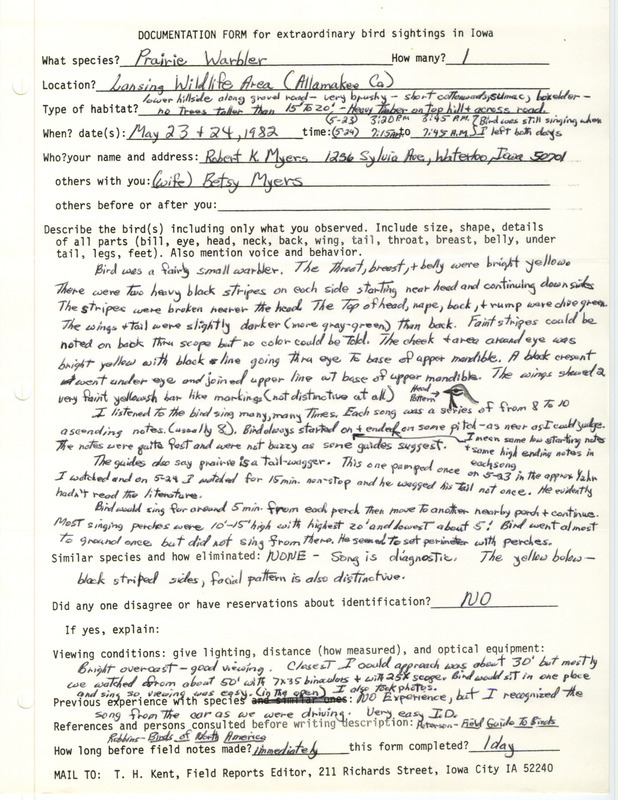 DOCUMENTATION FORM for extraordinary bird sightings in Iowa
What species? Prairie Warbler How many? 1
Location? Lansing Wildlife Area (Allamakee Co)
lower hillside along gravel road - very brushy - short cottonwoods, sumac, boxelder -
Type of habitat? no Trees taller than 15' to 20' - Heavy Timber on top hill + across road.
(5-23) 3:20 P.M. 3:45 P.M. } Bird was still singing when
When? date(s): May 23 + 24, 1982 time: (5-24) 7:15AM to 7:45 A.M. I left both days
Who? your name and address: Robert K. Myers 1256 Sylvia Ave, Waterloo, Iowa 50701
others with you: (wife) Betsy Myers
others before or after you:
Describe the bird(s) including only what you observed. Include size, shape, details
of all parts (bill, eye, head, neck, back, wing, tail, throat, breast, belly, under
tail, legs, feet). Also mention voice and behavior.
Bird was a fairly small warbler. The Throat, breast, + belly were bright yellow.
There were two heavy black stripes on each side starting near head and continuing down sides
The stripes were broken nearer the head. The Top of head, nape, back, + rump were olive green.
The wings + tail were slightly darker (more gray-green) than back. Faint stripes could be
noted on back thru scope but no color could be Told. The cheek + area around eye was
bright yellow with black line going thru eye to base of upper mandible. A black cresent
went under eye and joined upper line at base of upper mandible. The wings showed 2
very faint yellowish bar like markings (not distinctive at all) Head Pattern
I listened to the bird sing many, many Times. Each song was a series of from 8 to 10
ascending notes. (usually 8). Bird always started on + ended on some pitch - as near as I could judge.
The notes were quite fast and were not buzzy as some guides suggest. I mean same low starting notes
+ same high ending notes in each song
The guides also say prairie is a tail-wagger. This one pamped once on 5-23 in the approx 1/2 hr
I watched and on 5-24 I watched for 15 min. non-stop and he wagged his Tail not once. He evidently
hadn't read the literature.
Bird would sing for around 5 min. from each perch then move to another nearby perch + continue.
Most singing perches were 10'-15' high with highest 20' and lowest about 5'. Bird went almost
to ground once but did not sing from there. He seemed to set perimeter with perches.
Similar species and how eliminated: NONE - Song is diagnostic. The yellow below -
black striped sides, facial pattern is also distinctive.
Did any one disagree or have reservations about identification? NO
If yes, explain:
Viewing conditions: give lighting, distance (how measured), and optical equipment:
Bright overcast - good viewing. Closest I could approach was about 30' but mostly
we watched from about 50' with 7x35 binoculars + with 25x scope. Bird would sit in one place
and sing so viewing was easy. (in the open) I also took photos.
Previous experience with species and similar ones: NO Experience, but I recognized the
song from the car as we were driving. Very easy I.D.
References and persons consulted before writing description: Peterson - Field Guide To Birds
Robbins - Birds of North America
How long before field notes made? immediately this form completed? 1 day
MAIL TO: T. H. Kent, Field Reports Editor, 211 Richards Street, Iowa City IA 52240